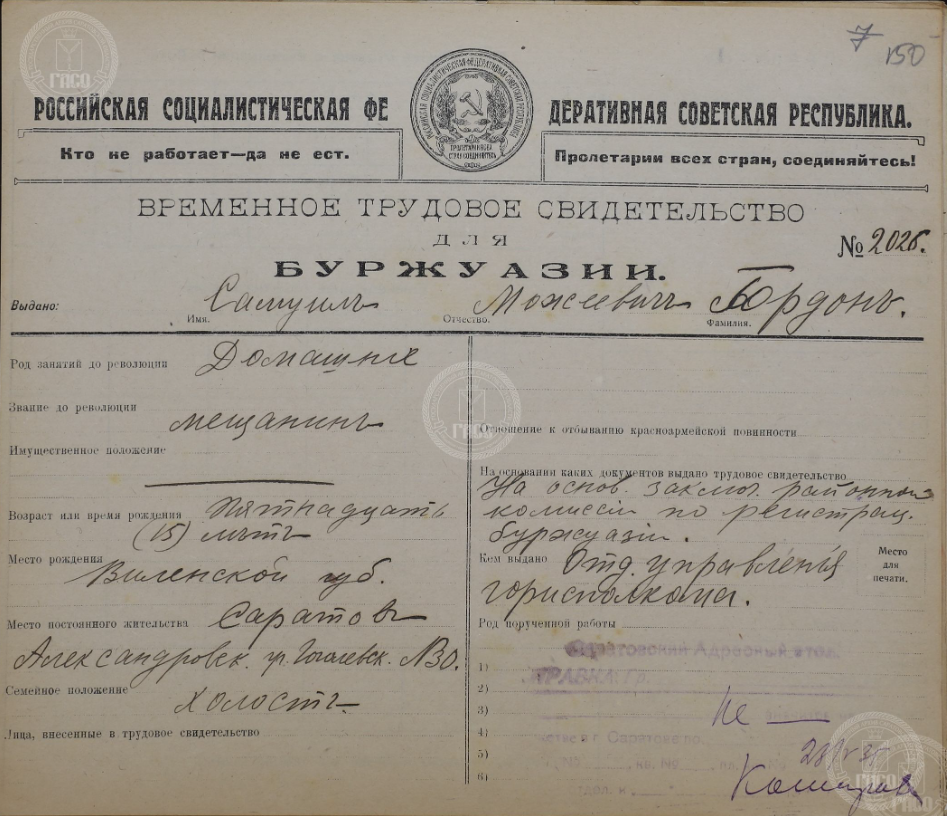 7 150
РОССИЙСКАЯ СОЦИАЛИСТИЧЕСКАЯ ФЕДЕРАТИВНАЯ СОВЕТСКАЯ РЕСПУБЛИКА.
Кто не работает—да не ест.
Пролетарии всех стран, соединяйтесь!
ВРЕМЕННОЕ ТРУДОВОЕ СВИДЕТЕЛЬСТВО
ДЛЯ
БУРЖУАЗИИ.
№ 2026.
Выдано: Самуилъ
Имя. Отчество. Фамилия.
Род занятий до революции Домашние
Звание до революции
мещанинъ
Имущественное положение
Возраст или время рождения Пятнадцать
(15) лѣтъ
Место рождения
Виленской губ.
Место постоянного жительства Саратовъ
Александровск.
Семейное положение
холостъ
Лица, внесенные в трудовое свидетельство
Отношение к отбыванию красноармейской повинности
На основании каких документов выдано трудовое свидетельство
На основ. заключ. районной
комиссіи по регистрац.
буржуазіи.
Кем выдано Отд. управленья
горисполкома.
Место
для
печати.
Род порученной работы
Саратовский Адресный стол.
СПРАВКА: Гр.
1)
2)
3)
4)
5)
6)
не
в г. Саратове по
№ кв. №
ГАСО